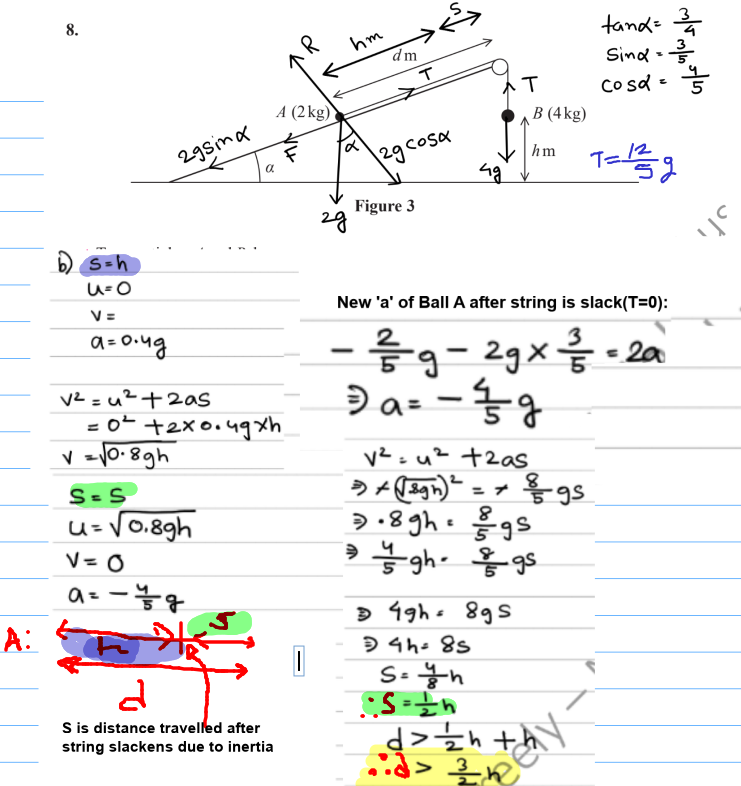 8.
tanα = 3/4
Sinα = 3/5
cosα = 4/5
R
hm
S
d m
T
T
A (2 kg)
B (4 kg)
2gsinα
F
α
α
2gcosα
4g
h m
T = 12/5 g
2g
Figure 3
b) s=h
u=0
v=
a=0.4g
v² = u² + 2as
= 0² + 2×0.4g×h
v = √0.8gh
S = S
u = √0.8gh
v = 0
a = - 4/5 g
A:
h
S
d
S is distance travelled after
string slackens due to inertia
New 'a' of Ball A after string is slack(T=0):
- 2/5 g - 2g × 3/5 = 2a
⇒ a = - 4/5 g
v² = u² + 2as
⇒ + (√.8gh)² = + 8/5 gs
⇒ .8gh = 8/5 gs
⇒ 4/5 gh = 8/5 gs
⇒ 4gh = 8gs
⇒ 4h = 8s
S = 4/8 h
∴ S = 1/2 h
d > 1/2 h + h
∴ d > 3/2 h